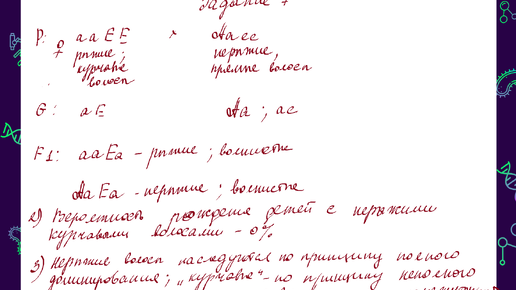 Задание 7
P: ♀ aaEE × Aaee
рыжие; нерыжие,
курчавые прямые волосы
волосы
G: aE Aa ; ae
F1: aaEa – рыжие ; волнистые
AaEa – нерыжие ; волнистые
2) Вероятность рождения детей с нерыжими
курчавыми волосами – 0%
3) Нерыжие волосы наследуются по принципу полного
доминирования; „курчавые“ – по принципу неполного